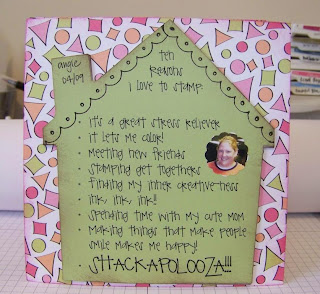 angie
04/09
ten
reasons
i love to stamp
• it's a great stress reliever
• it lets me color!
• meeting new friends
• stamping get togethers
• finding my inner creative-ness
• ink, ink, ink!!
• spending time with my cute mom
• making things that make people
smile makes me happy!!
• SHACKAPOLOOZA!!!